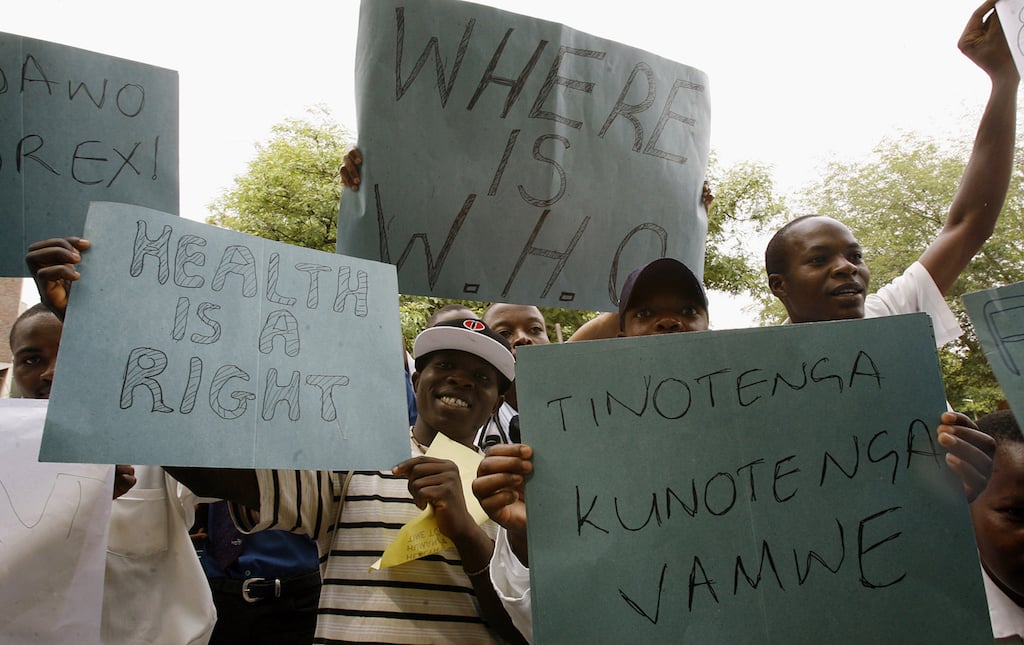 DAWO
REX!
WHERE
IS
W.H.O
HEALTH
IS A
RIGHT
TINOTENGA
KUNOTENGA
VAMWE